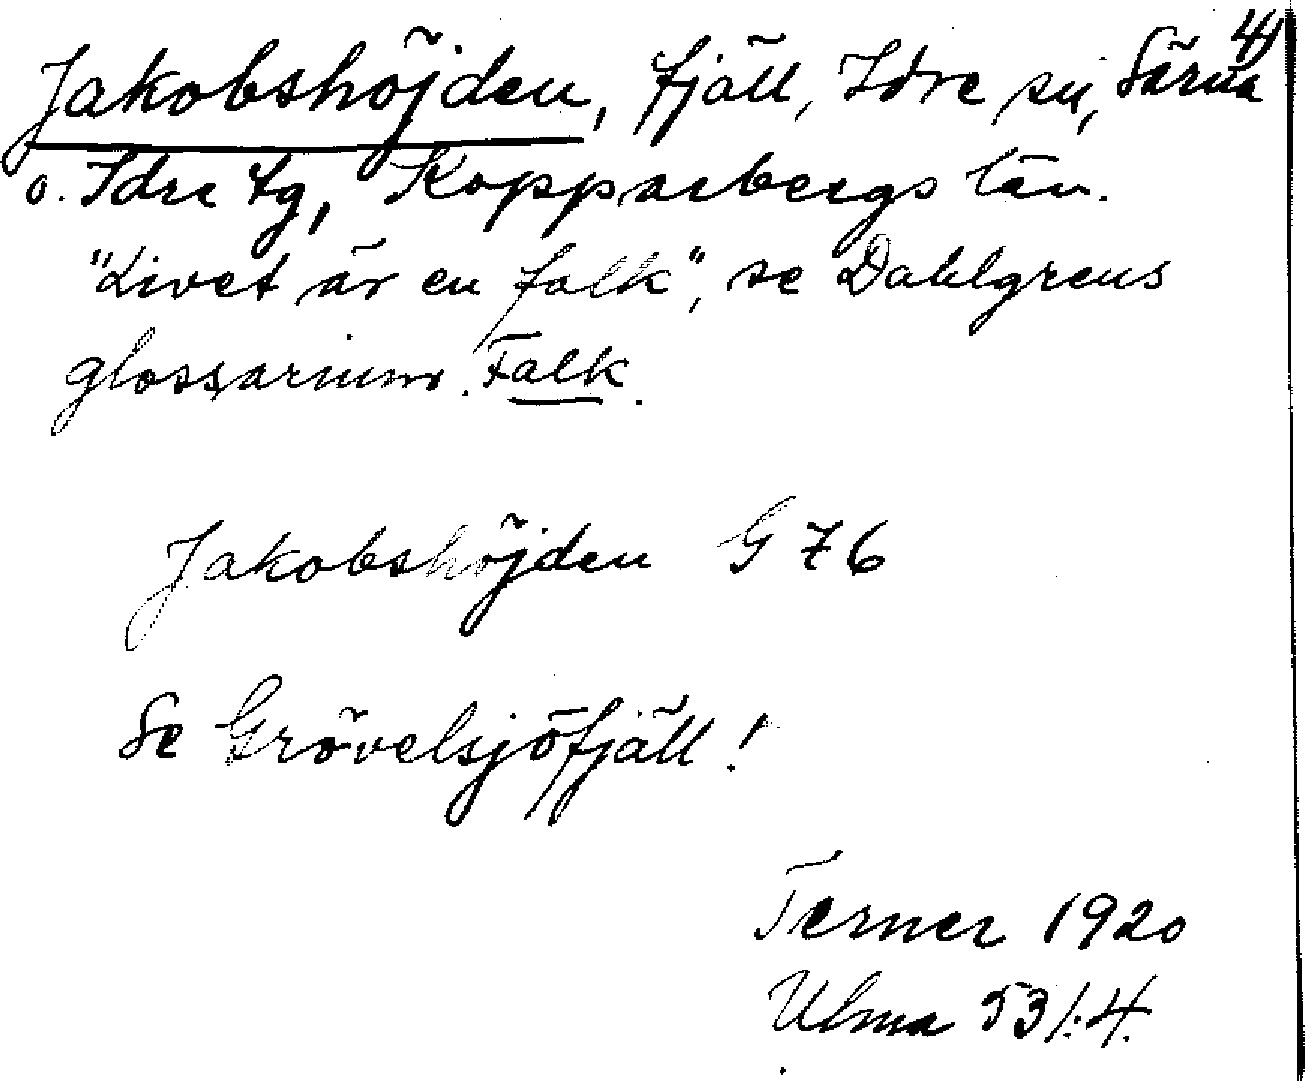 4
Jakobshöjden, fjäll, Idre sn, Särna
o. Idre tg, Kopparbergs län.
"Livet är en falk", se Dahlgrens
glossarium. Falk.
Jakobshöjden G 76
Se Grövelsjöfjäll!
Terner 1920
Ulma 53/:4.